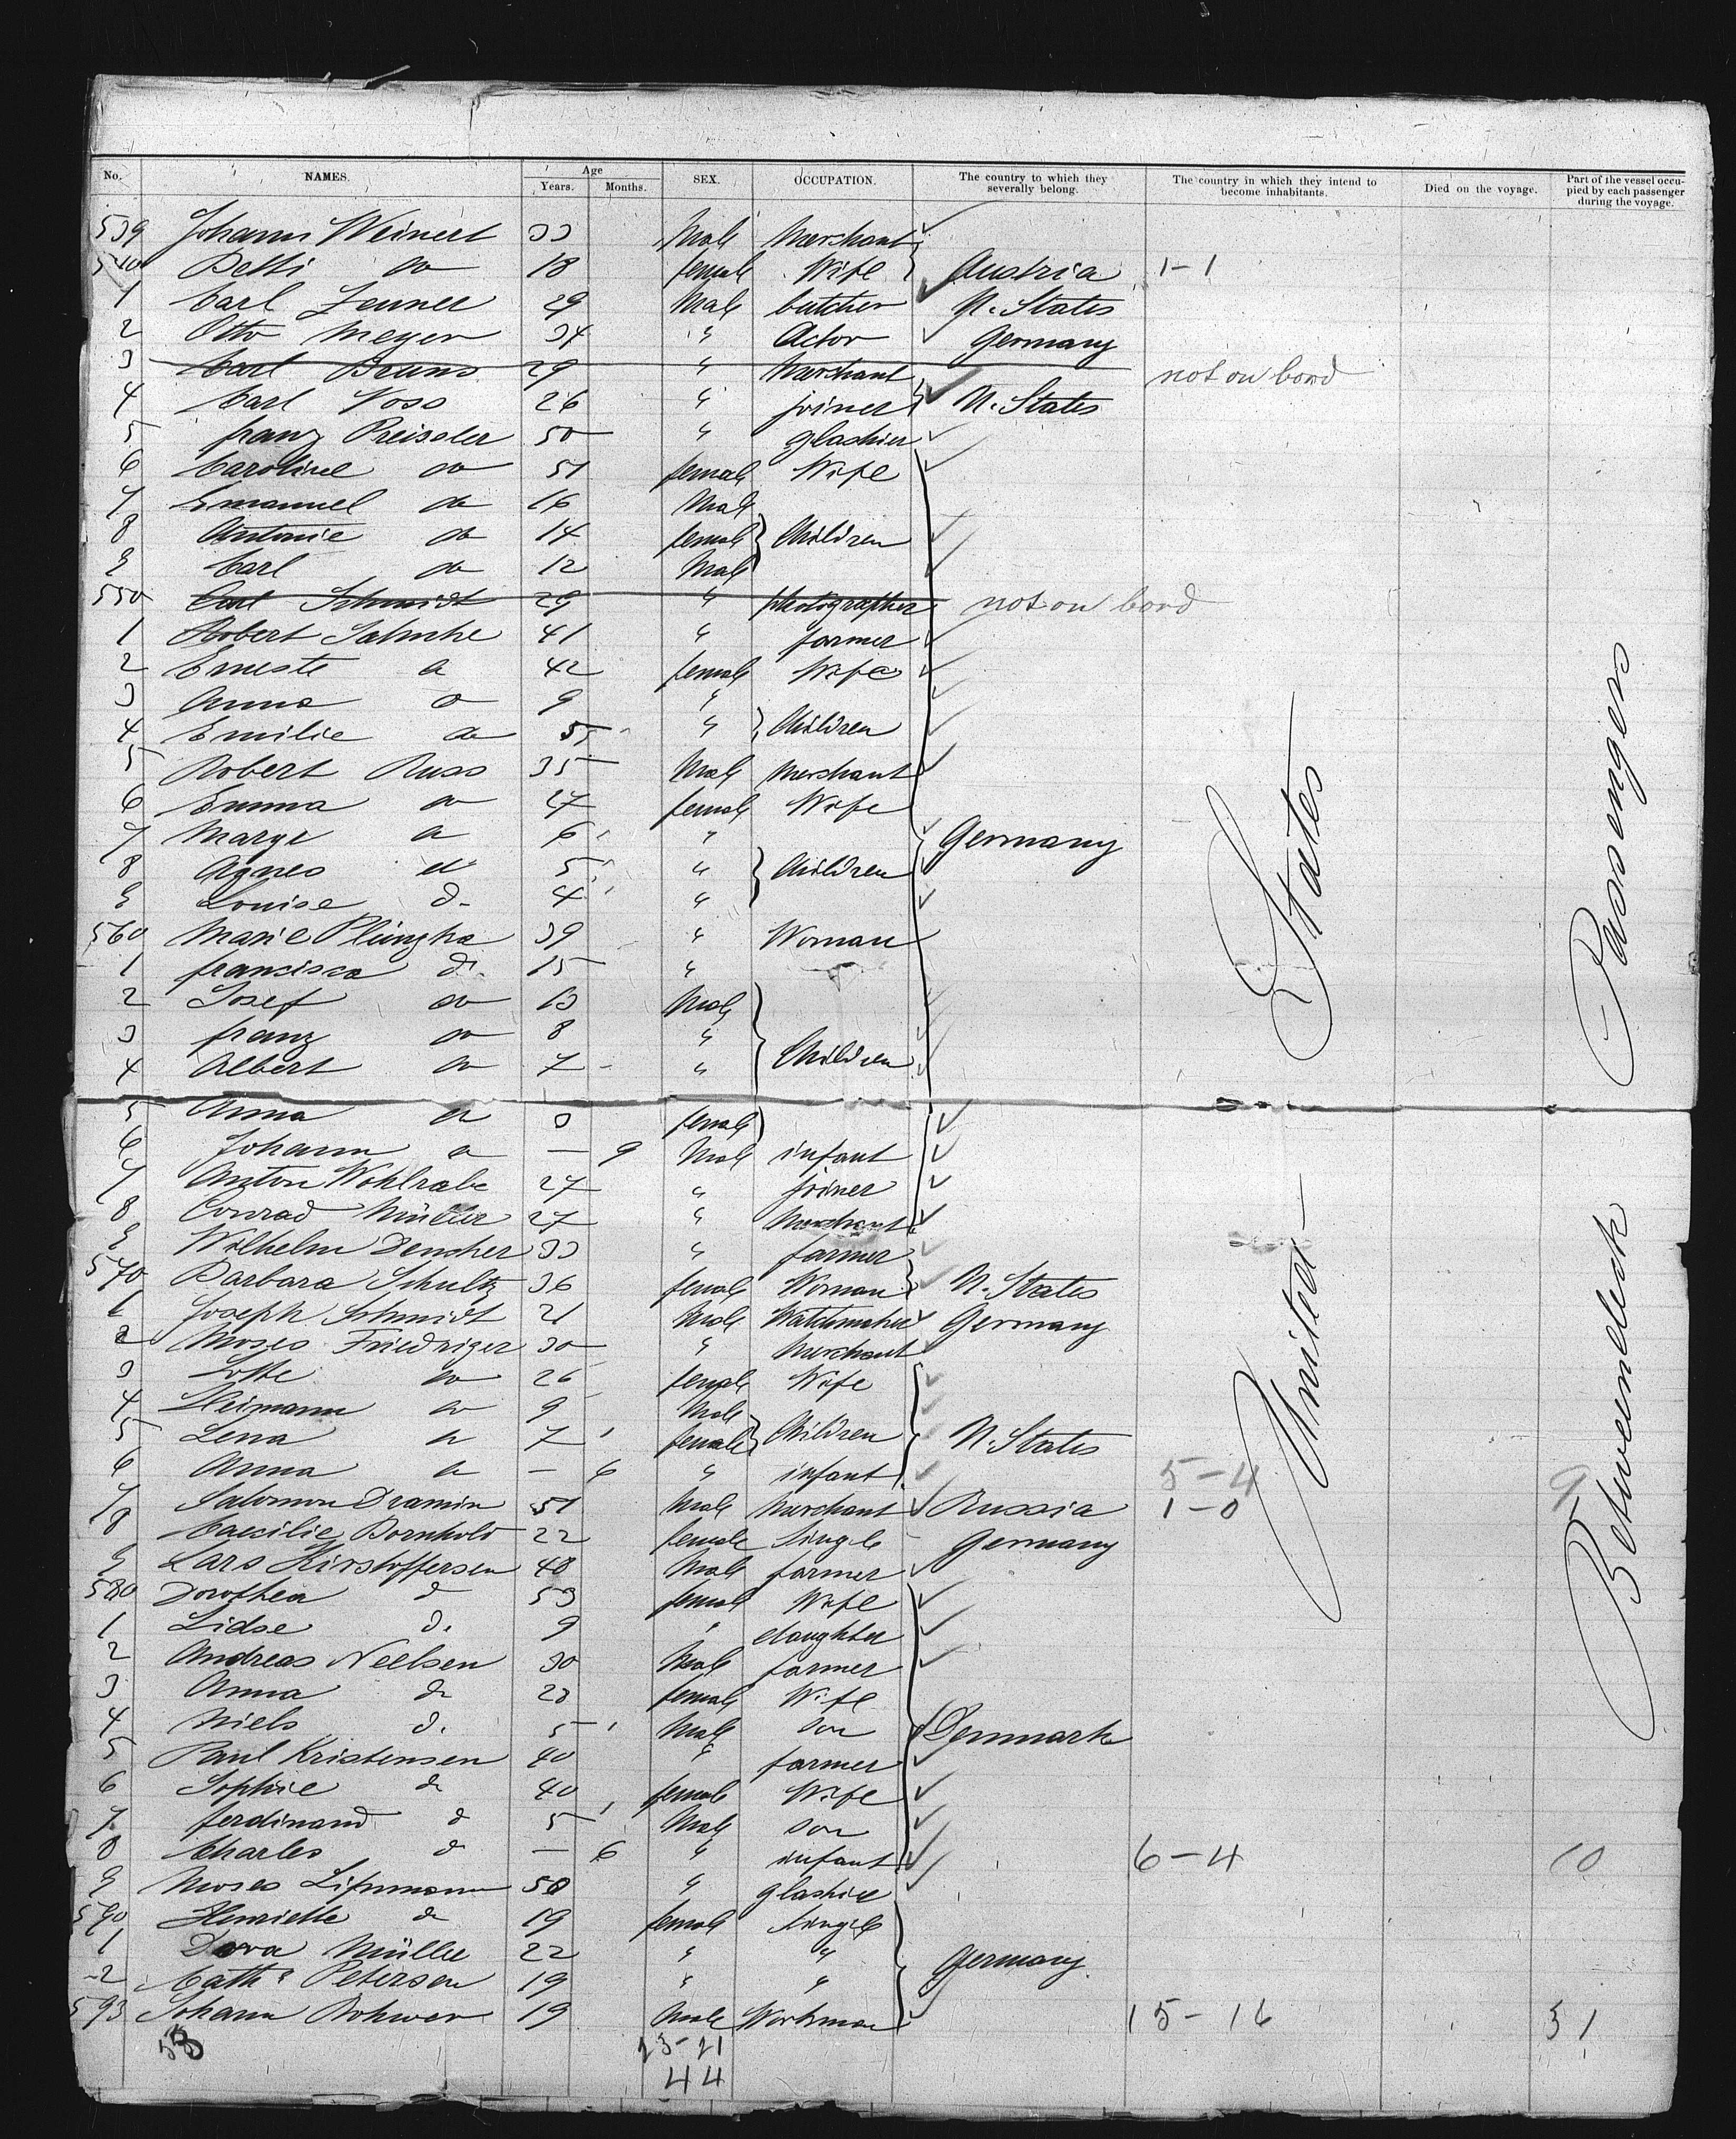 No. NAMES. Age Years. Months. SEX. OCCUPATION. The country to which they severally belong. The country in which they intend to become inhabitants. Died on the voyage. Part of the vessel occupied by each passenger during the voyage.
539 Johann Weinert 33 Male Merchant
540 Betti do 18 female Wife Austria 1-1
1 Carl Zeuner 29 Male butcher U. States
2 Otto Meyer 34 " Actor Germany
3 Carl Bruns 29 " Merchant not on bord
4 Carl Voss 26 " joiner U. States
5 franz Preissler 50 " glashier
6 Caroline do 51 female Wife
7 Emanuel do 16 Male
8 Antonie do 14 female Children
9 Carl do 12 Male
550 Carl Schmidt 29 " photographer not on bord
1 Robert 41 " farmer
2 Erneste do 42 female Wife
3 Anna do 9 "
4 Emilie do 5 " Children
5 Robert Russ 35 Male Merchant
6 Emma do 27 female Wife
7 Marge do 6 " Germany
8 Agnes do 5 " Children
9 Louise do 4 "
560 Marie 39 " Woman
1 francisca do 15 "
2 Josef do 13 Male
3 franz do 8 "
4 Albert do 7 " Children
5 Anna do 3 female
6 Johann do — 9 Male infant
7 Anton Wohlrabe 27 " joiner
8 Conrad Müller 27 " Merchant
9 Wilhelm Dencher 33 " farmer
570 Barbara Schultz 36 female Woman U. States
1 Joseph Schmidt 21 Male Watchmaker Germany
2 Moses Friedriger 30 " Merchant
3 Lotte do 26 female Wife
4 Heimann do 9 Male
5 Lena do 7 female Children U. States
6 Anna do — 6 " infant 5-4 9
7 Salomon Dramin 51 Male Merchant Russia 1-0
8 Caecilie Bornholt 22 female Single Germany
9 Lars Kirstoffersen 48 Male farmer
580 Dorothea do 53 female Wife
1 Lidse do 9 " daughter
2 Andreas Neelsen 30 Male farmer
3 Anna do 28 female Wife
4 Niels do 5 Male son Denmark
5 Paul Kristensen 40 " farmer
6 Sophie do 40 female Wife
7 ferdinand do 5 Male son
8 Charles do — 6 " infant 6-4 10
9 Moses Lipmann 50 " glashier
590 Henriette do 19 female Single
1 Dora Müller 22 " " Germany
2 Cath. Petersen 19 " "
593 Johann Rohwer 19 Male Workman 15-16 31
58 23-21
44
United States
Betweendeck Passengers